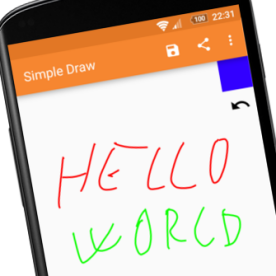 100 22:31
Simple Draw
HELLO
WORLD